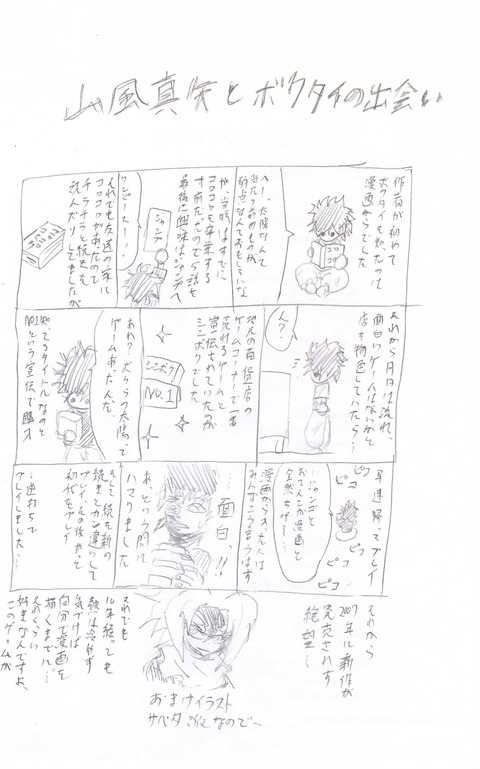 山風真矢とボクタイの出会い
作者が初めて
ボクタイを知ったのは
漫画からでした
コロコロ
へー、太陽なんて
当たり前のものが
弱点なんておもしろいな
が、当時はすでに
コロコロを卒業する
寸前だったので5話を
最後に興味はジャンプへ
ジャンプ
ワンピースー!!
それでも友達の家に
コロコロがあったので
チラチラと続きも
読んだりしてましたが
それから月日は流れ、
面白いゲームはないかと
店を物色していたら…
ん?
地元の百貨店の
ゲームコーナーで一番
売れてるゲームと
宣伝されていたが
シンボクでした
シンボク
NO.1
あれ?ボクらの太陽って
ゲームあったんだ
知ってるタイトルなのと
NO.1という宣伝で購入
早速帰ってプレイ
ピコ
ピコ
ピコ
ピコ
ピコ
…ジャンゴと
おてんこが漫画と
全然ちげー…
漫画から入った人は
みんなこう思うはず
…面白っ!!
あっという間に
ハマりました
そして続・新の
続きとカン違いして
プレイ、その後やっと
初代をプレイ
…逆打ちで
プレイしました…
それから
2007年に新作が
発売されず
絶望…
おまけイラスト
それでも
10年経っても
熱は冷めず
気づけば
自分で漫画を
描くまでに…
それくらい
好きなんですよ、
このゲームが